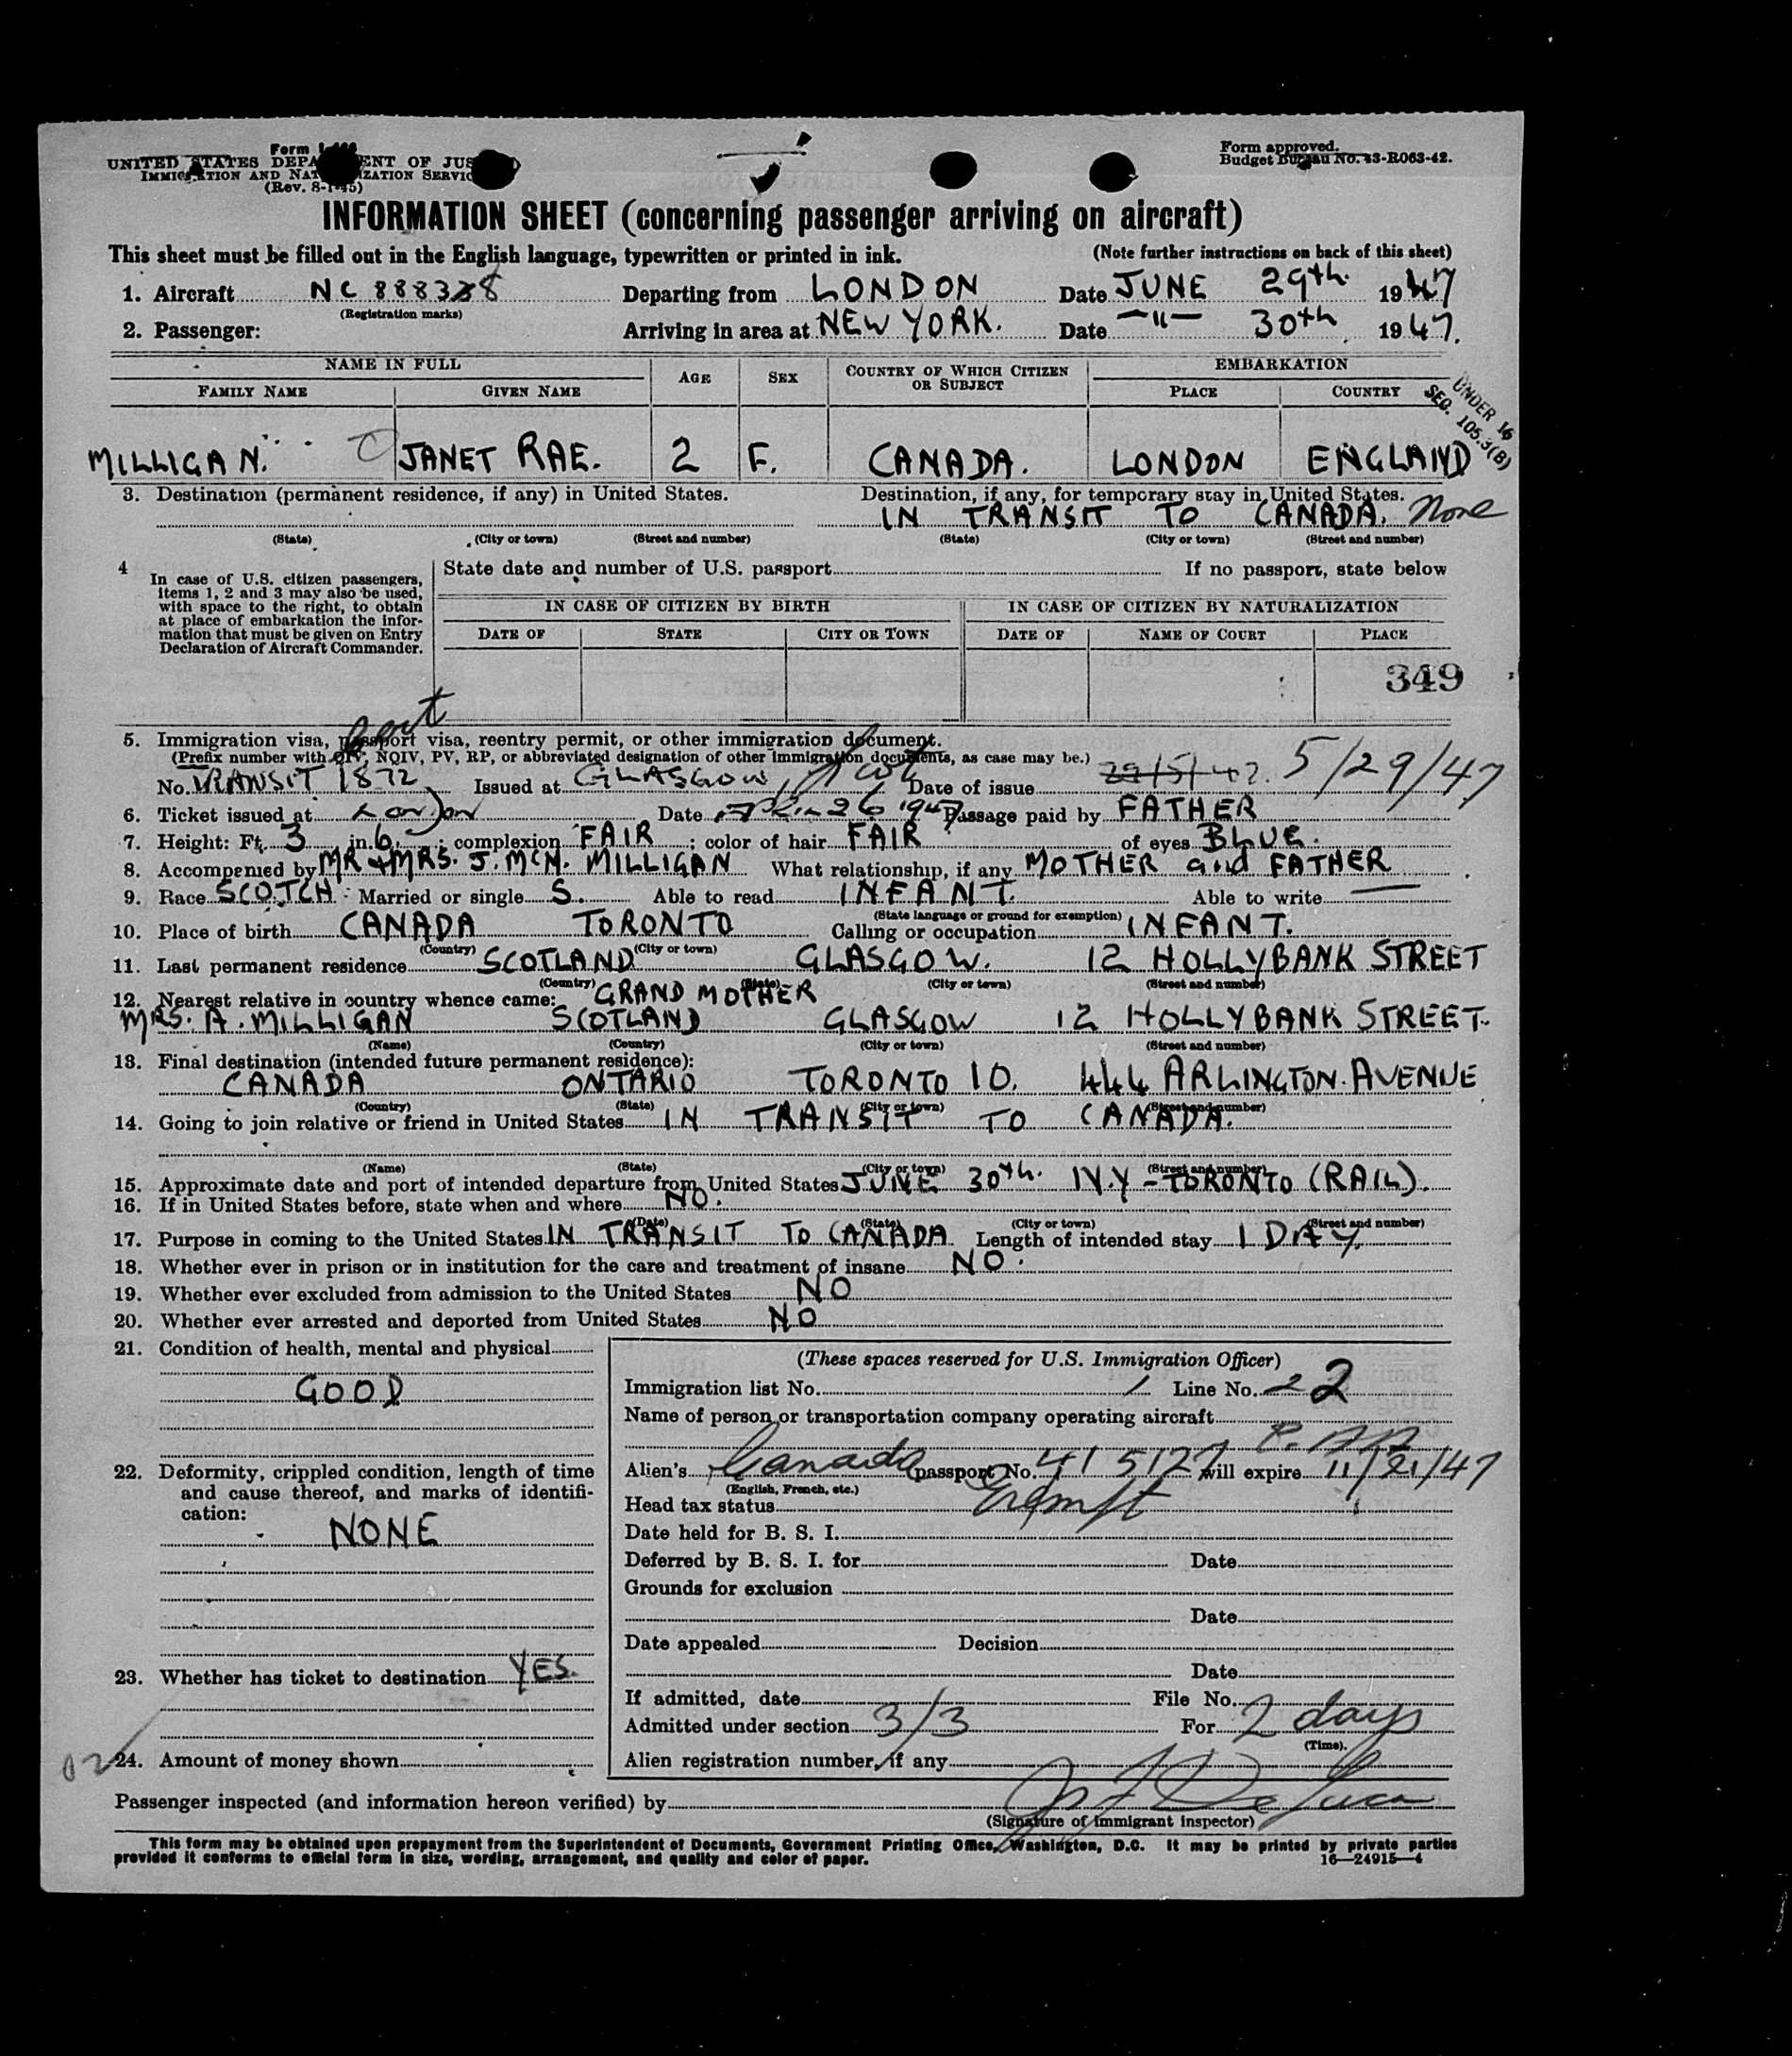 Form
UNITED STATES DEPA ENT OF JUS
IMMIGRATION AND NAT IZATION SERVIC
(Rev. 8-1-45)
Form approved.
Budget Bureau No. 43-R063-42.
INFORMATION SHEET (concerning passenger arriving on aircraft)
This sheet must be filled out in the English language, typewritten or printed in ink. (Note further instructions on back of this sheet)
1. Aircraft NC 88838 Departing from LONDON Date JUNE 29th. 1947
(Registration marks)
2. Passenger: Arriving in area at NEW YORK. Date —"— 30th 1947.
NAME IN FULL AGE SEX COUNTRY OF WHICH CITIZEN OR SUBJECT EMBARKATION
FAMILY NAME GIVEN NAME PLACE COUNTRY
UNDER 16
SEC. 105.3(B)
MILLIGAN. JANET RAE. 2 F. CANADA. LONDON ENGLAND
3. Destination (permanent residence, if any) in United States. Destination, if any, for temporary stay in United States.
IN TRANSIT TO CANADA. None
(State) (City or town) (Street and number) (State) (City or town) (Street and number)
4 In case of U.S. citizen passengers, items 1, 2 and 3 may also be used, with space to the right, to obtain at place of embarkation the information that must be given on Entry Declaration of Aircraft Commander.
State date and number of U.S. passport If no passport, state below
IN CASE OF CITIZEN BY BIRTH IN CASE OF CITIZEN BY NATURALIZATION
DATE OF STATE CITY OR TOWN DATE OF NAME OF COURT PLACE
349
5. Immigration visa, passport visa, reentry permit, or other immigration document.
(Prefix number with QIV, NQIV, PV, RP, or abbreviated designation of other immigration documents, as case may be.)
No. TRANSIT 1872 Issued at GLASGOW, Scot Date of issue 29/5/47. 5/29/47
6. Ticket issued at London Date 26 1947 Passage paid by FATHER
7. Height: Ft. 3 in. 6 ; complexion FAIR ; color of hair FAIR of eyes BLUE.
8. Accompenied by MR & MRS. J. McN. MILLIGAN What relationship, if any MOTHER and FATHER
9. Race SCOTCH Married or single S. Able to read INFANT. Able to write —
(State language or ground for exemption)
10. Place of birth CANADA TORONTO Calling or occupation INFANT.
(Country) (City or town)
11. Last permanent residence SCOTLAND GLASGOW. 12 HOLLYBANK STREET
(Country) (State) (City or town) (Street and number)
12. Nearest relative in country whence came: GRAND MOTHER
MRS. A. MILLIGAN SCOTLAND GLASGOW 12 HOLLYBANK STREET.
(Name) (Country) (City or town) (Street and number)
13. Final destination (intended future permanent residence):
CANADA ONTARIO TORONTO 10. 444 ARLINGTON AVENUE
(Country) (State) (City or town) (Street and number)
14. Going to join relative or friend in United States IN TRANSIT TO CANADA.
(Name) (State) (City or town) (Street and number)
15. Approximate date and port of intended departure from United States JUNE 30th. N.Y - TORONTO (RAIL).
16. If in United States before, state when and where NO.
(Date) (State) (City or town) (Street and number)
17. Purpose in coming to the United States IN TRANSIT TO CANADA Length of intended stay 1 DAY.
18. Whether ever in prison or in institution for the care and treatment of insane NO.
19. Whether ever excluded from admission to the United States NO
20. Whether ever arrested and deported from United States NO
21. Condition of health, mental and physical
GOOD
22. Deformity, crippled condition, length of time and cause thereof, and marks of identification:
NONE
23. Whether has ticket to destination YES.
24. Amount of money shown
(These spaces reserved for U.S. Immigration Officer)
Immigration list No. 1 Line No. 2 2
Name of person or transportation company operating aircraft
P.AA
Alien's Canada passport No. 41 5127 will expire 11/21/47
(English, French, etc.)
Head tax status Exempt
Date held for B. S. I.
Deferred by B. S. I. for Date
Grounds for exclusion
Date
Date appealed Decision
Date
If admitted, date File No.
Admitted under section 3/3 For 2 days
(Time).
Alien registration number, if any
Passenger inspected (and information hereon verified) by
(Signature of immigrant inspector)
This form may be obtained upon prepayment from the Superintendent of Documents, Government Printing Office, Washington, D.C. It may be printed by private parties
provided it conforms to official form in size, wording, arrangement, and quality and color of paper. 16—24915—4